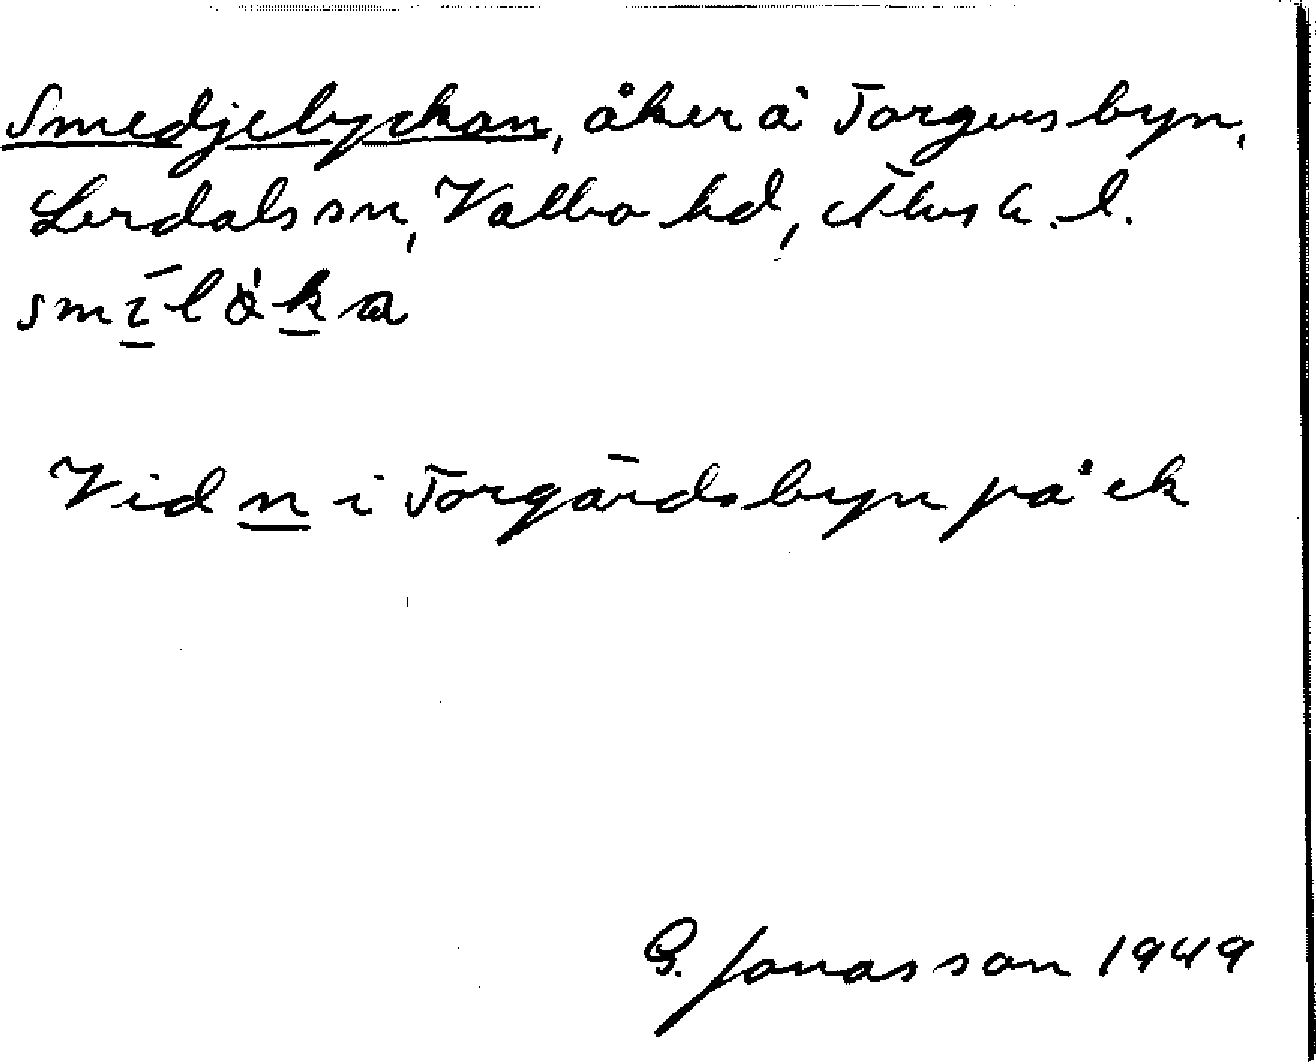 Smedjelyckan, åker å Torgersbyn,
Lerdals sn, Valbo hd, Älvsb. l.
smīlåka
Vid n i Torgärdsbyn på ek
G. Jonasson 1949